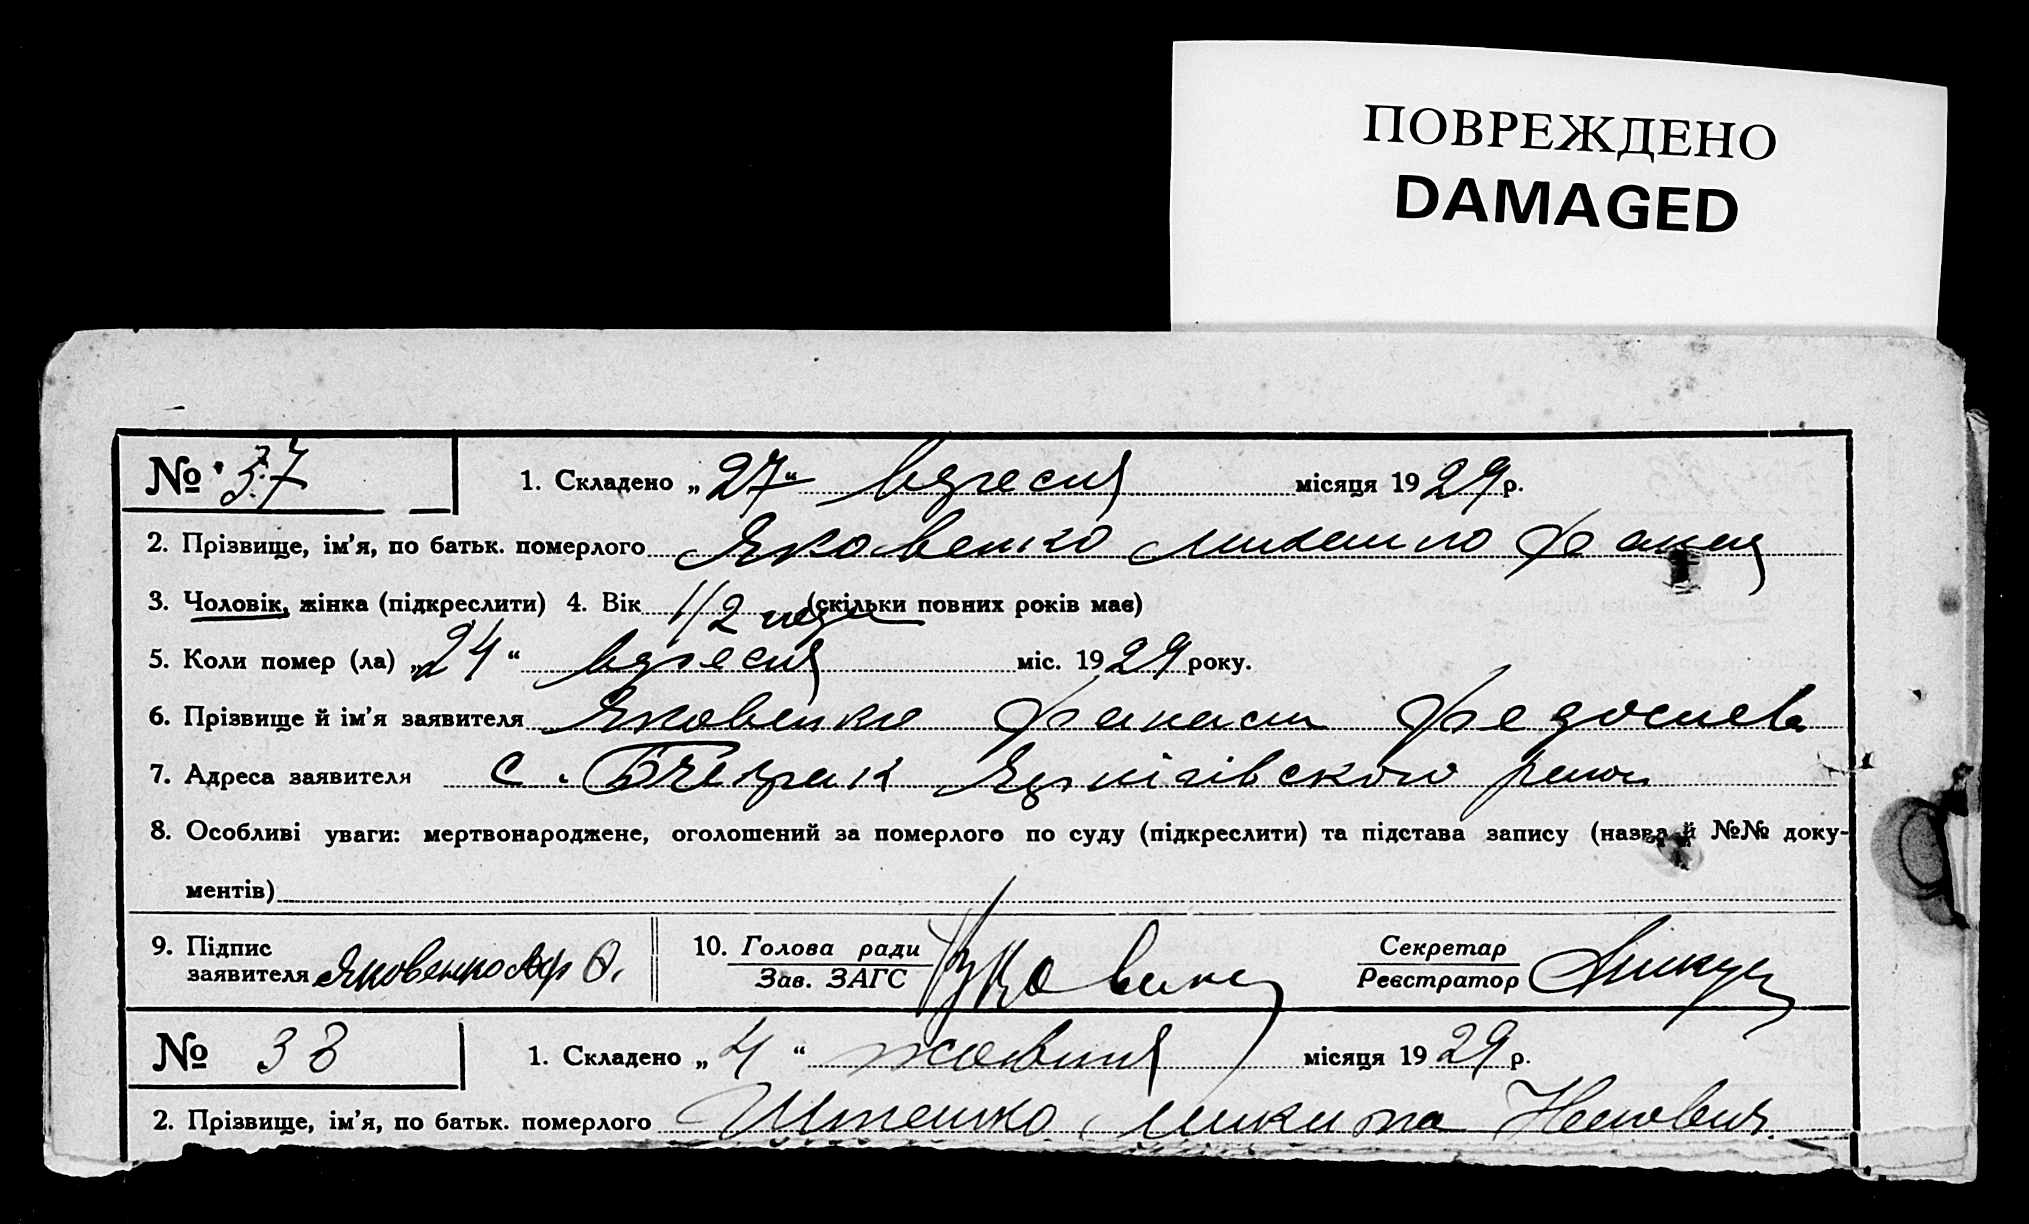 ПОВРЕЖДЕНО
DAMAGED
№ 37 1. Складено „27“ вересня місяця 1929 р.
2. Прізвище, ім'я, по батьк. померлого Яковенко Михайло
3. Чоловік, жінка (підкреслити) 4. Вік 1/2 года (скільки повних років має)
5. Коли помер (ла) „24“ вересня міс. 1929 року.
6. Прізвище й ім'я заявителя Яковенко Фанаси
7. Адреса заявителя с.
8. Особливі уваги: мертвонароджене, оголошений за померлого по суду (підкреслити) та підстава запису (назва й №№ доку-
ментів)
9. Підпис 10. Голова ради Секретар
заявителя Яковенко Аф Зав. ЗАГС Реєстратор
№ 38 1. Складено „4“ жовтня місяця 1929 р.
2. Прізвище, ім'я, по батьк. померлого Микита